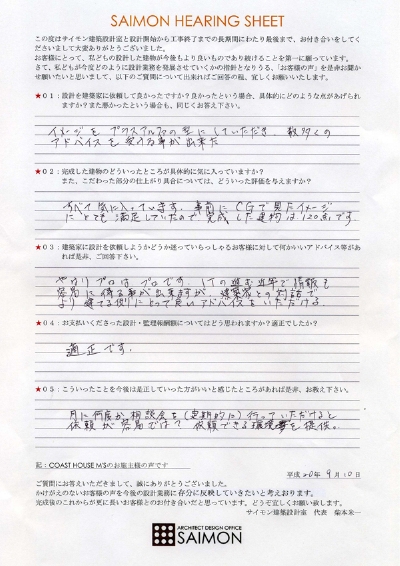 SAIMON HEARING SHEET
この度はサイモン建築設計室と設計開始から工事終了までの長期間にわたり最後まで、お付き合いをしてく
ださいまして大変ありがとうございました。
お客様にとって、私どもの設計した建物が今後もより良いものであり続けることを第一に願っています。
さて、私どもが今後どのように設計業務を発展させていくかの指針となりうる、「お客様の声」を是非お聞か
せ願いたいと思いまして、以下のご質問について出来ればご回答の程、宜しくお願いいたします。
★01：設計を建築家に依頼して良かったですか？良かったという場合、具体的にどのような点があげられ
ますか？また悪かったという場合も、同じくお答え下さい。
イメージをプラスアルファの型にしていただき、数多くの
アドバイスを受ける事が出来た
★02：完成した建物のどういったところが具体的に気に入っていますか？
また、こだわった部分の仕上がり具合については、どういった評価を与えますか？
すべて気に入っています。事前にCGで見たイメージ
にとても満足していたので完成した建物は120点です
★03：建築家に設計を依頼しようかどうか迷っていらっしゃるお客様に対して何かいいアドバイス等があ
れば是非、ご回答下さい。
やはりプロはプロです。ITの進む近年で情報も
容易に得る事が出来ますが、建築家との対話で
より建てる側にとって良いアドバイスをいただける。
★04：お支払いくださった設計・監理報酬額についてはどう思われますか？適正でしたか？
適正です．
★05：こういったことを今後は是正していった方がいいと感じたところがあれば是非、お教え下さい。
月に何度か相談会を（定期的に）行っていただけると
依頼が容易ではて 依頼できる環境を提供。
記：COAST HOUSE M'Sのお施主様の声です
平成 20年 9月10日
ご質問にお答えいただきまして、誠にありがとうございました。
かけがえのないお客様の声を今後の設計業務に存分に反映していきたいと考えております。
完成後のこれからが更に長いお客様とのお付き合いだと思っています。どうぞ宜しくお願い致します。
サイモン建築設計室 代表 柴本米一
ARCHITECT DESIGN OFFICE
SAIMON